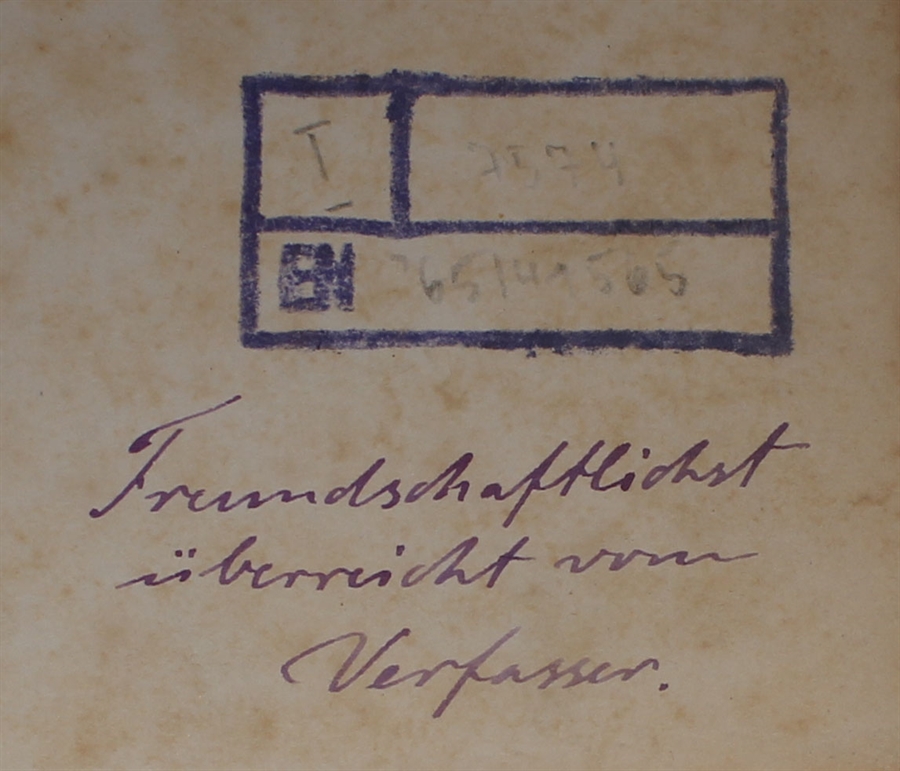 I 7574
EN 65/41565
Freundschaftlichst
überreicht vom
Verfasser.